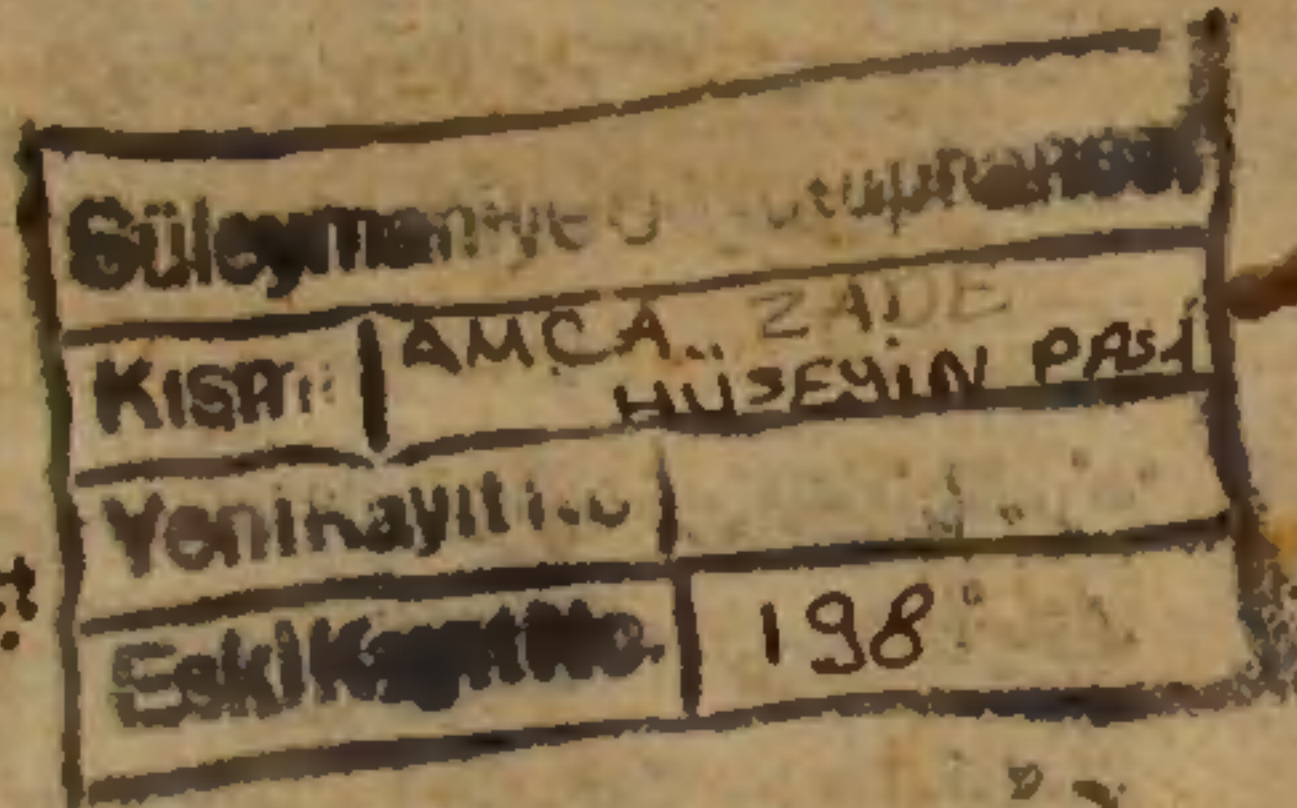 Süleymaniye U Kütüphanesi
Kısmı AMCA ZADE
HÜSEYİN PAŞA
Yeni Kayıt No
Eski Kayıt No. 198